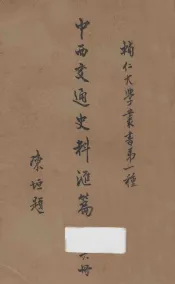 輔仁大學叢書第一種
中西交通史料滙篇
冊
陳垣題